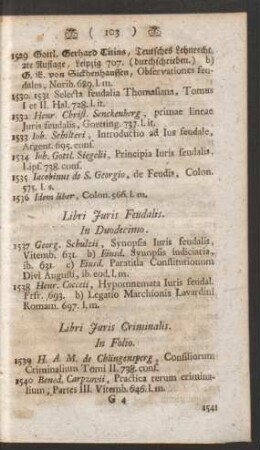 ( 103 )
1529 Gottl. Gerhard Titius, Teutsches Lehnrecht,
2te Auflage, Leipzig 707. (durchschrieben.) b)
G. E. von Sickhenhaussen, Observationes feu-
dales, Norib. 689. l. m.
1530. 1531 Selecta feudalia Thomasiana, Tomus
I et II. Hal. 728. l. it.
1532 Henr. Christ. Senckenberg, primae lineae
Juris feudalis, Goetting. 737. l. it.
1533 Joh. Schilteri, Introductio ad Ius feudale,
Argent. 695. conf.
1534 Joh. Gottl. Siegelii, Principia Iuris feudalis,
Lips. 738. conf.
1535 Iacobinus de S. Georgio, de Feudis, Colon.
575. l. s.
1536 Idem liber, Colon. 566. l. m.
Libri Juris Feudalis.
In Duodecimo.
1537 Georg. Schulzii, Synopsis Iuris feudalis,
Vitemb. 631. b) Eiusd. Synopsis iudiciaria,
ib. 631. c) Eiusd. Paratitla Constitutionum
Divi Augusti, ib. eod. l. m.
1538 Henr. Cocceii, Hypomnemata Iuris feudal.
Frf. 693. b) Legatio Marchionis Lavardini
Romam. 697. l. m.
Libri Juris Criminalis.
In Folio.
1539 H. A. M. de Chlingensperg, Consiliorum
Criminalium Tomi II. 738. conf.
1540 Bened. Carpzovii, Practica rerum crimina-
lium, Partes III. Vitemb. 646. l. m.
G 4
1541